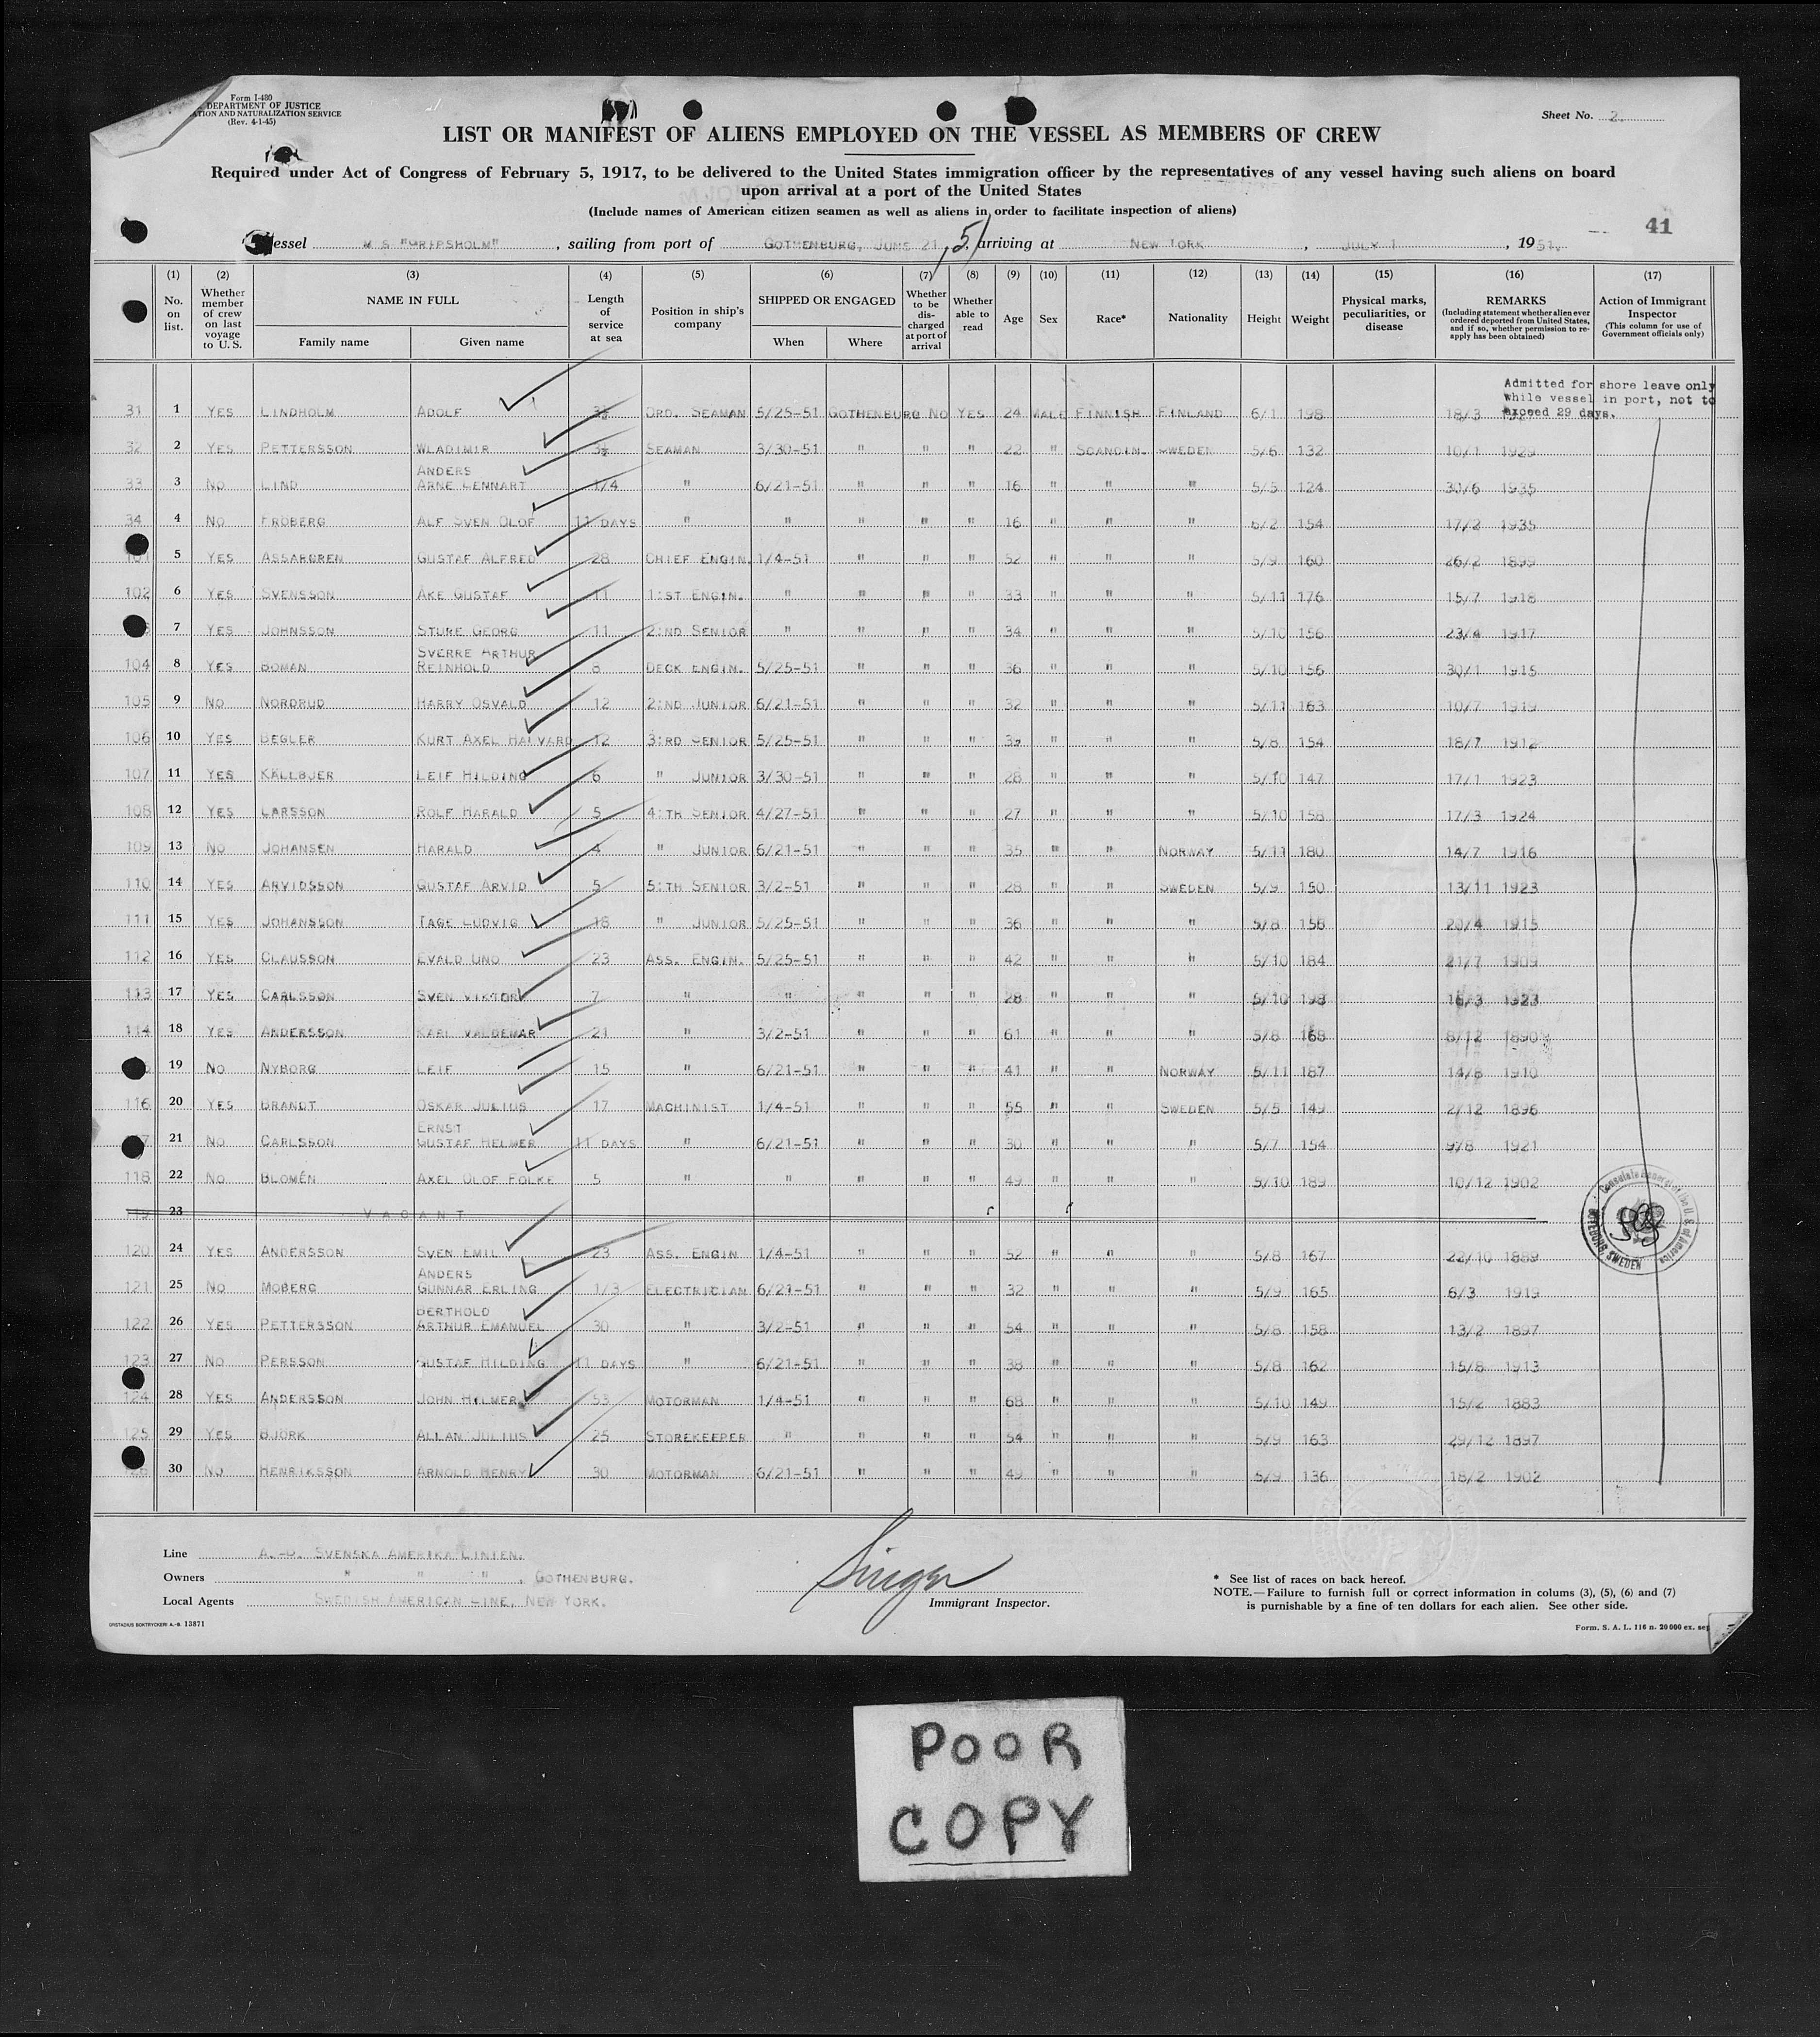 Form I-480
DEPARTMENT OF JUSTICE
ATION AND NATURALIZATION SERVICE
(Rev. 4-1-45)
Sheet No. 2.
LIST OR MANIFEST OF ALIENS EMPLOYED ON THE VESSEL AS MEMBERS OF CREW
Required under Act of Congress of February 5, 1917, to be delivered to the United States immigration officer by the representatives of any vessel having such aliens on board
upon arrival at a port of the United States
(Include names of American citizen seamen as well as aliens in order to facilitate inspection of aliens)
41
essel M.S."GRIPSHOLM", sailing from port of GOTHENBURG, JUNE 21, 51 arriving at NEW YORK, JULY 1, 1951.
(1) (2) (3) (4) (5) (6) (7) (8) (9) (10) (11) (12) (13) (14) (15) (16) (17)
No. on list. Whether member of crew on last voyage to U. S. NAME IN FULL Family name Given name Length of service at sea Position in ship's company SHIPPED OR ENGAGED When Where Whether to be dis-charged at port of arrival Whether able to read Age Sex Race* Nationality Height Weight Physical marks, peculiarities, or disease REMARKS (Including statement whether alien ever ordered deported from United States, and if so, whether permission to re-apply has been obtained) Action of Immigrant Inspector (This column for use of Government officials only)
Admitted for shore leave only
while vessel in port, not to
exceed 29 days.
31 1 YES LINDHOLM ADOLF 3½ ORD. SEAMAN 5/25-51 GOTHENBURG NO YES 24 MALE FINNISH FINLAND 6/1 198 18/3
32 2 YES PETTERSSON WLADIMIR 3½ SEAMAN 3/30-51 " " " 22 " SCANDIN. SWEDEN 5/6 132 10/1 1929
33 3 NO LIND ANDERS ARNE LENNART 1/4 " 6/21-51 " " " 16 " " " 5/5 124 30/6 1935
34 4 NO FRÖBERG ALF SVEN OLOF 11 DAYS " " " " " 16 " " " 6/2 154 17/2 1935
101 5 YES ASSARGREN GUSTAF ALFRED 28 CHIEF ENGIN. 1/4-51 " " " 52 " " " 5/9 160 26/2 1899
102 6 YES SVENSSON ÅKE GUSTAF 11 1:ST ENGIN. " " " " 33 " " " 5/11 176 15/7 1918
7 YES JOHNSSON STURE GEORG 11 2:ND SENIOR " " " " 34 " " " 5/10 156 23/4 1917
104 8 YES BOMAN SVERRE ARTHUR REINHOLD 8 DECK ENGIN. 5/25-51 " " " 36 " " " 5/10 156 30/1 1915
105 9 NO NORDRUD HARRY OSVALD 12 2:ND JUNIOR 6/21-51 " " " 32 " " " 5/11 163 10/7 1919
106 10 YES BEGLER KURT AXEL HALVARD 12 3:RD SENIOR 5/25-51 " " " 39 " " " 5/8 154 18/7 1912
107 11 YES KÄLLBJER LEIF HILDING 6 " JUNIOR 3/30-51 " " " 28 " " " 5/10 147 17/1 1923
108 12 YES LARSSON ROLF HARALD 5 4:TH SENIOR 4/27-51 " " " 27 " " " 5/10 158 17/3 1924
109 13 NO JOHANSEN HARALD 4 " JUNIOR 6/21-51 " " " 35 " " NORWAY 5/11 180 14/7 1916
110 14 YES ARVIDSSON GUSTAF ARVID 5 5:TH SENIOR 3/2-51 " " " 28 " " SWEDEN 5/9 150 13/11 1923
111 15 YES JOHANSSON TAGE LUDVIG 18 " JUNIOR 5/25-51 " " " 36 " " " 5/8 156 20/4 1915
112 16 YES CLAUSSON EVALD UNO 23 ASS. ENGIN. 5/25-51 " " " 42 " " " 5/10 184 21/7 1909
113 17 YES CARLSSON SVEN VIKTOR 7 " " " " " 28 " " " 5/10 198 16/3 1923
114 18 YES ANDERSSON KARL VALDEMAR 21 " 3/2-51 " " " 61 " " " 5/8 168 8/12 1890
19 NO NYBORG LEIF 15 " 6/21-51 " " " 41 " " NORWAY 5/11 187 14/8 1910
116 20 YES BRANDT OSKAR JULIUS 17 MACHINIST 1/4-51 " " " 55 " " SWEDEN 5/5 149 2/12 1896
7 21 NO CARLSSON ERNST GUSTAF HELMER 11 DAYS " 6/21-51 " " " 30 " " " 5/7 154 9/8 1921
118 22 NO BLOMÉN AXEL OLOF FOLKE 5 " " " " " 49 " " " 5/10 189 10/12 1902
119 23 VACANT
120 24 YES ANDERSSON SVEN EMIL 23 ASS. ENGIN 1/4-51 " " " 52 " " " 5/8 167 22/10 1889
121 25 NO MOBERG ANDERS GUNNAR ERLING 1/3 ELECTRICIAN 6/21-51 " " " 32 " " " 5/9 165 6/3 1919
122 26 YES PETTERSSON BERTHOLD ARTHUR EMANUEL 30 " 3/2-51 " " " 54 " " " 5/8 158 13/2 1897
123 27 NO PERSSON GUSTAF HILDING 11 DAYS " 6/21-51 " " " 38 " " " 5/8 162 15/8 1913
124 28 YES ANDERSSON JOHN HILMER 53 MOTORMAN 1/4-51 " " " 68 " " " 5/10 149 15/2 1883
125 29 YES BJÖRK ALLAN JULIUS 25 STOREKEEPER " " " " 54 " " " 5/9 163 29/12 1897
126 30 NO HENRIKSSON ARNOLD HENRY 30 MOTORMAN 6/21-51 " " " 49 " " " 5/9 136 18/2 1902
Consulate General of the U. S. of America
GOTEBORG, SWEDEN
Line A.-B. SVENSKA AMERIKA LINIEN.
Owners " " ", GOTHENBURG.
Local Agents SWEDISH AMERICAN LINE, NEW YORK.
Singer
Immigrant Inspector.
* See list of races on back hereof.
NOTE.—Failure to furnish full or correct information in colums (3), (5), (6) and (7)
is punishable by a fine of ten dollars for each alien. See other side.
ORSTADIUS BOKTRYCKERI A.-B. 13871
Form. S. A. L. 116 n. 20 000 ex. sep
POOR
COPY